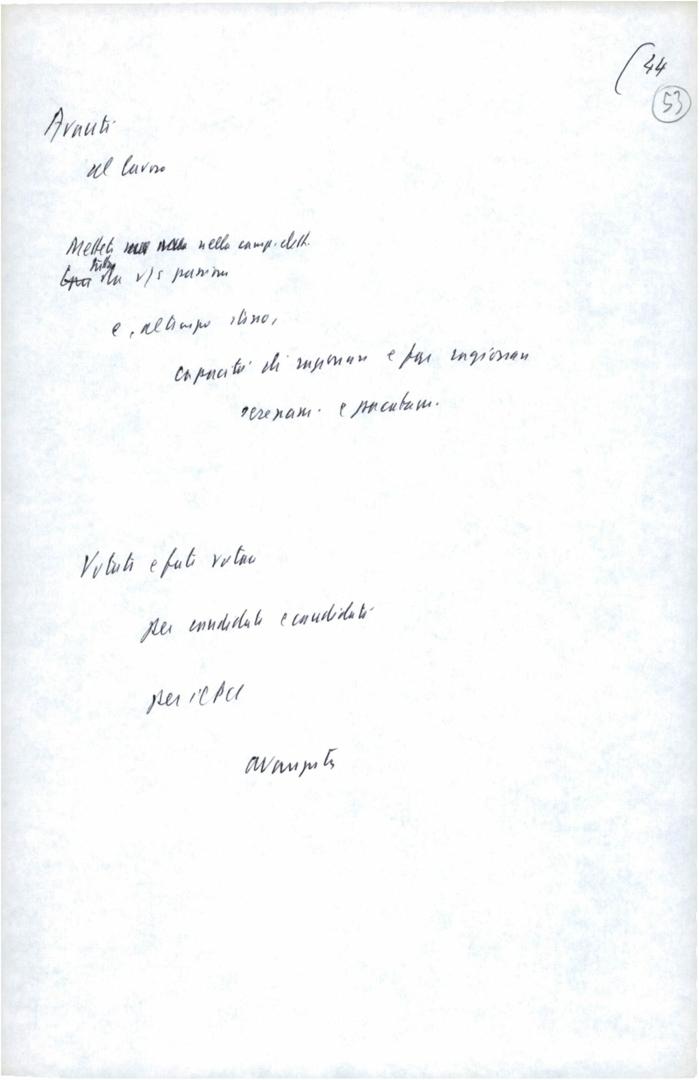 44
53
Avanti
al lavoro
Mettete nella camp. elett.
tutta la v/s passione
e, al tempo stesso,
capacità di ragionare e far ragionare
serenam. e pacatam.
Votate e fate votare
per candidate e candidati
per il PCI